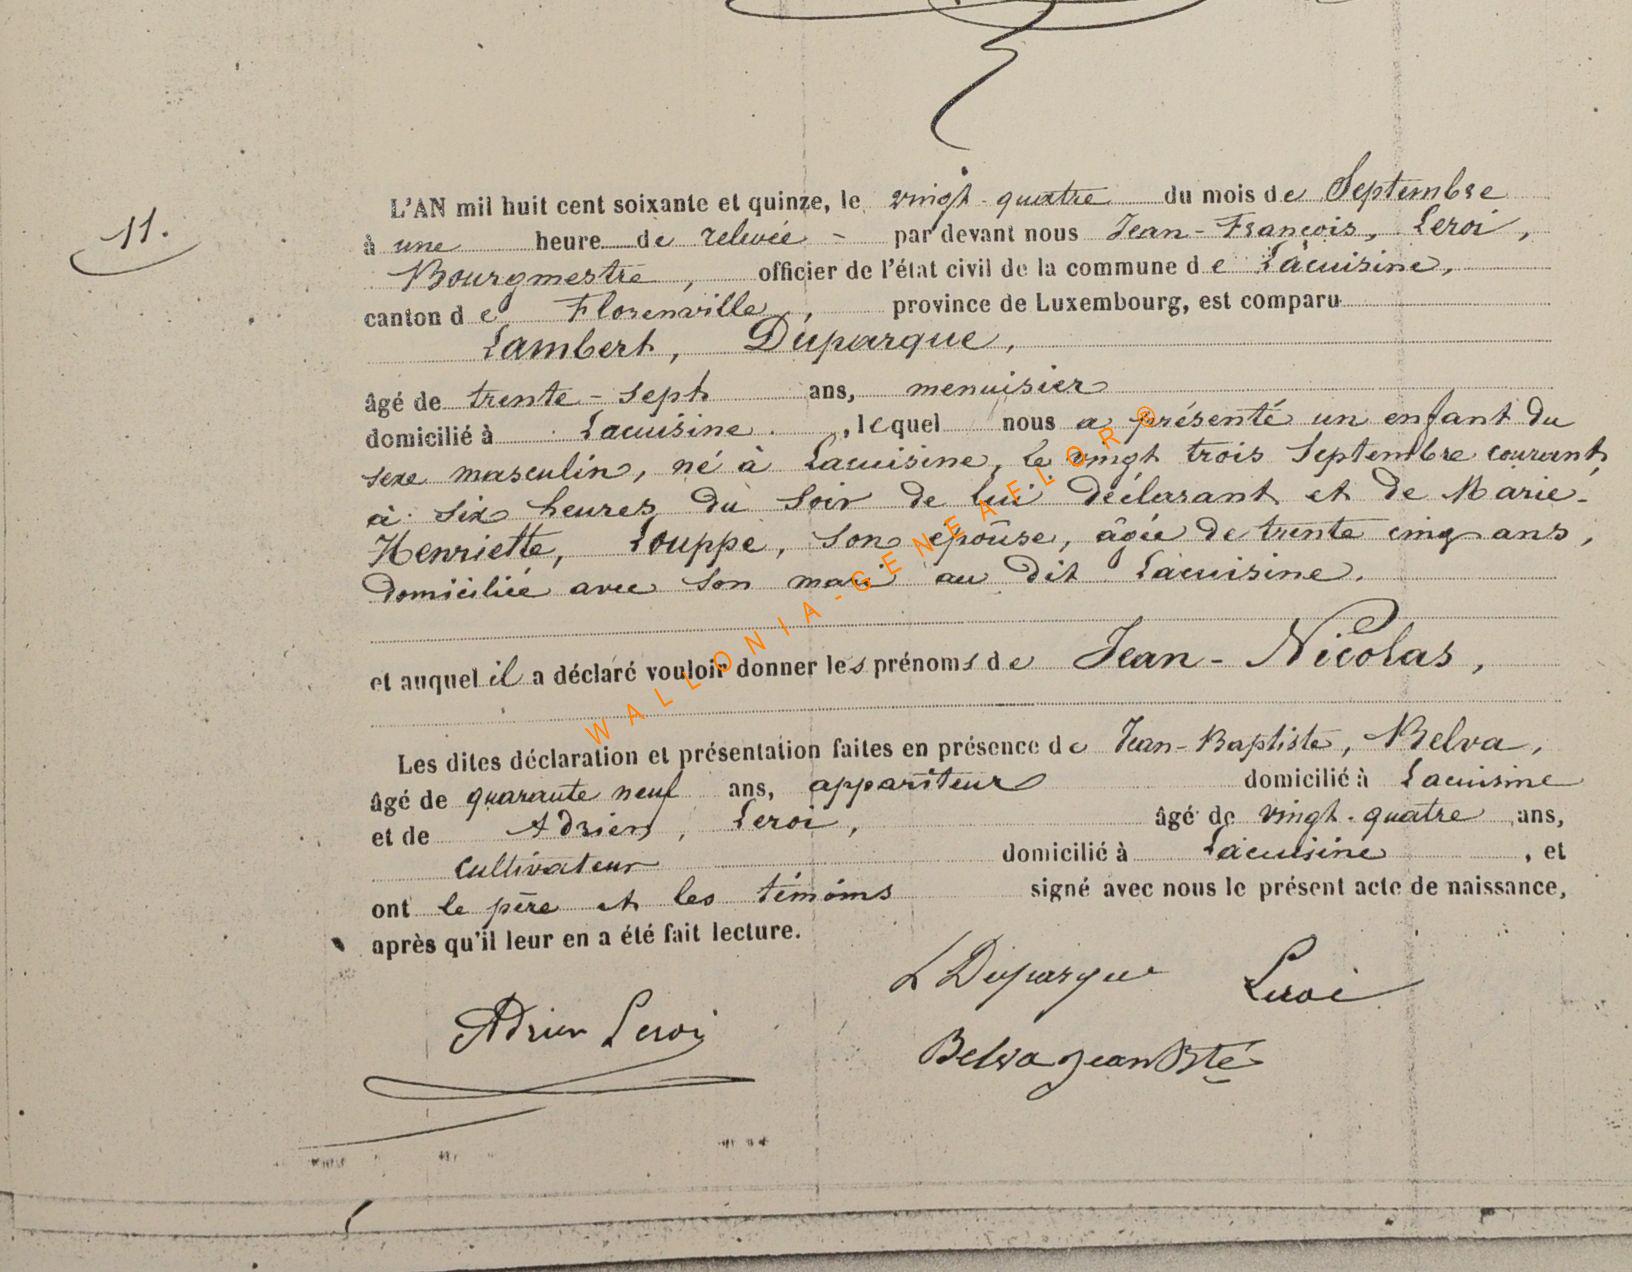 11.
L'AN mil huit cent soixante et quinze, le vingt-quatre du mois de Septembre
à une heure de relevée - par devant nous Jean-François, Leroi,
Bourgmestre, officier de l'état civil de la commune de Lacuisine,
canton de Florenville, province de Luxembourg, est comparu
Lambert, Duparque,
âgé de trente-sept ans, menuisier
domicilié à Lacuisine, lequel nous a présenté un enfant du
sexe masculin, né à Lacuisine, le vingt trois Septembre courant,
à six heures du soir de lui déclarant et de Marie-
Henriette, Louppe, son épouse, âgée de trente cinq ans,
domiciliée avec son mari au dit Lacuisine.
et auquel il a déclaré vouloir donner les prénoms de Jean-Nicolas,
Les dites déclaration et présentation faites en présence de Jean-Baptiste, Belva,
âgé de quarante neuf ans, appariteur domicilié à Lacuisine
et de Adrien, Leroi, âgé de vingt-quatre ans,
cultivateur domicilié à Lacuisine, et
ont le père et les témoins signé avec nous le présent acte de naissance,
après qu'il leur en a été fait lecture.
L Duparque Leroi
Adrien Leroi
Belva Jean Bte
WALLONIA-GENEAFLOR®